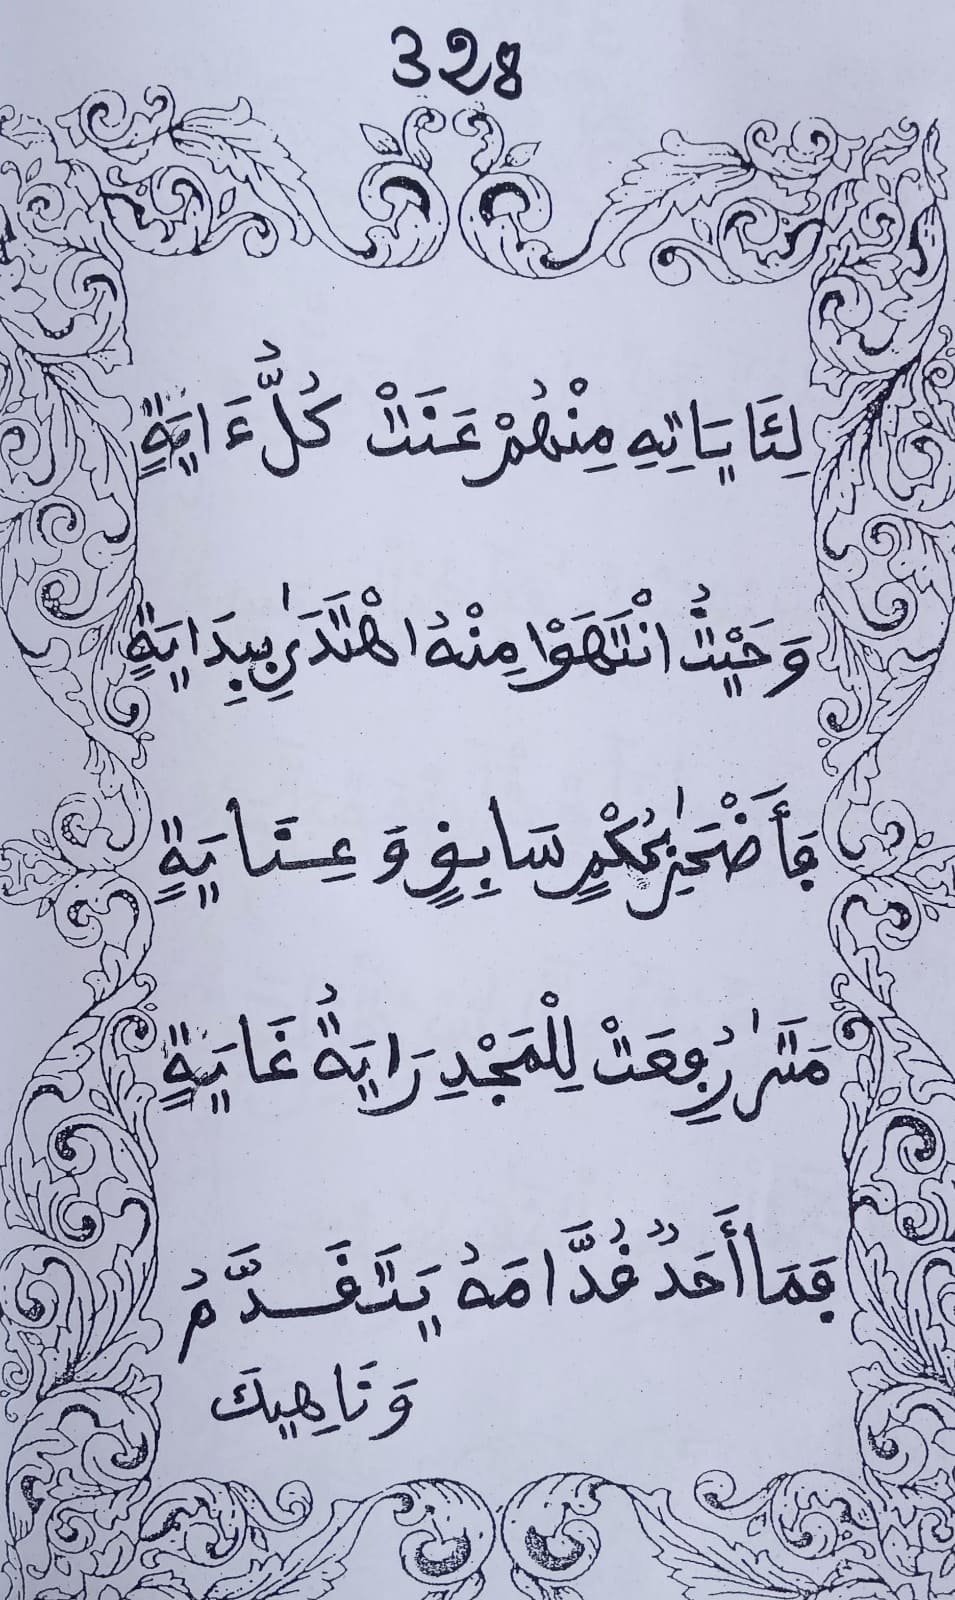 328
لِئَايَاتِهِ مِنْهُمْ عَنَتْ كُلُّ ءَايَةٍ
وَحَيْثُ انْتَهَوْا مِنْهُ اهْتَدَىٰ بِبِدَايَةٍ
فَأَضْحَىٰ بِحُكْمٍ سَابِقٍ وَعِنَايَةٍ
مَتَىٰ رُفِعَتْ لِلْمَجْدِ رَايَةُ غَايَةٍ
فَمَا أَحَدٌ قُدَّامَهُ يَتَقَدَّمُ
وَنَاهِيكَ